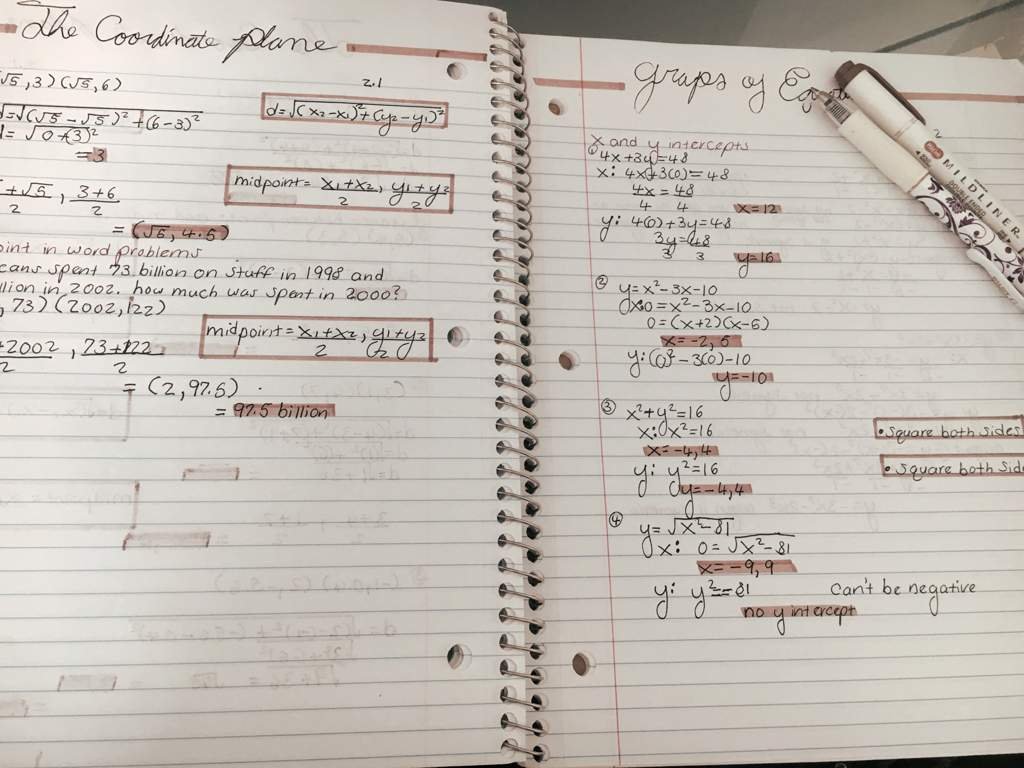 The Coordinate plane
√5, 3) (√5, 6)
2.1
d=√(x₂-x₁)²+(y₂-y₁)²
d=√(√5-√5)²+(6-3)²
d= √0+(3)²
=3
midpoint= x₁+x₂/2, y₁+y₂/2
+√5/2, 3+6/2
= (√5, 4.5)
oint in word problems
cans spent 73 billion on stuff in 1998 and
llion in 2002. how much was spent in 2000?
, 73) (2002, 122)
midpoint= x₁+x₂/2, y₁+y₂/2
+2002/2, 73+122/2
= (2, 97.5)
= 97.5 billion
graps of
x and y intercepts
① 4x+3y=48
x: 4x+3(0)=48
4x/4 = 48/4
x=12
y: 4(0)+3y=48
3y/3=48/3
y=16
② y=x²-3x-10
x:0=x²-3x-10
0=(x+2)(x-5)
x=-2, 5
y:(0)²-3(0)-10
y=-10
③ x²+y²=16
x: x²=16
x=-4,4
•square both sides
y: y²=16
y=-4,4
•square both side
④ y=√x²-81
x: 0=√x²-81
x=-9,9
y: y²=-81 can't be negative
no y intercept
2
MILDLINER